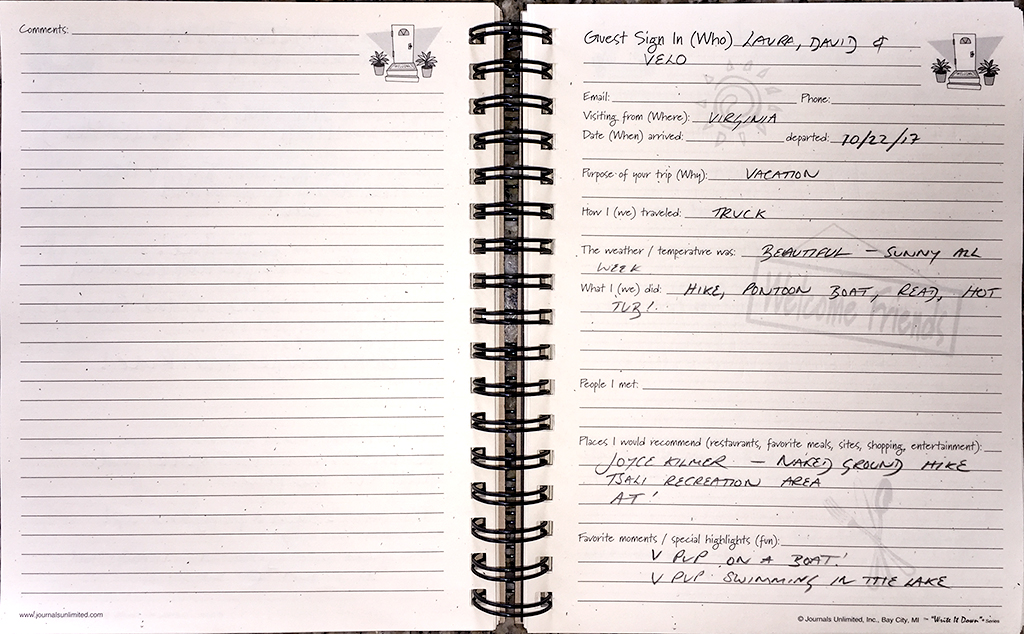 Comments:
www.journalsunlimited.com
Guest Sign In (Who) LAURA, DAVID &
VELO
Email: Phone:
Visiting from (Where): VIRGINIA
Date (When) arrived: departed: 10/22/17
Purpose of your trip (Why): VACATION
How I (we) traveled: TRUCK
The weather / temperature was: BEAUTIFUL – SUNNY ALL
WEEK
What I (we) did: HIKE, PONTOON BOAT, READ, HOT
TUB!
Welcome Friends
People I met:
Places I would recommend (restaurants, favorite meals, sites, shopping, entertainment):
JOYCE KILMER – NAKED GROUND HIKE
TSALI RECREATION AREA
AT!
Favorite moments / special highlights (fun):
V PUP ON A BOAT!
V PUP SWIMMING IN THE LAKE
© Journals Unlimited, Inc., Bay City, MI ™ "Write It Down"® Series